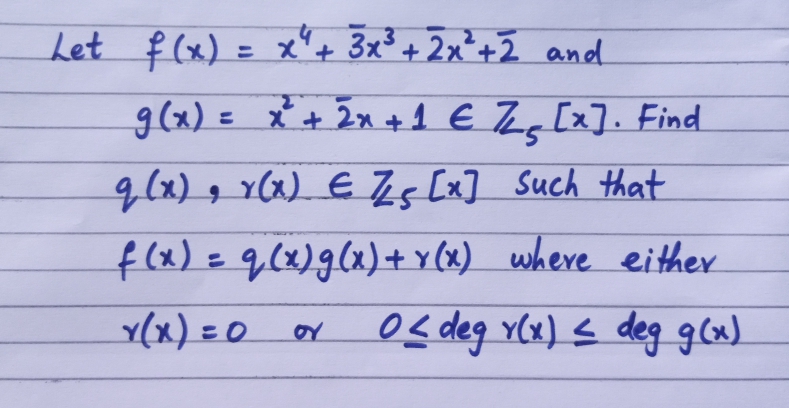 Let f(x) = x⁴ + 3̄x³ + 2̄x² + 2̄ and
g(x) = x² + 2̄x + 1 ∈ ℤ₅[x]. Find
q(x), r(x) ∈ ℤ₅[x] such that
f(x) = q(x)g(x) + r(x) where either
r(x) = 0 or 0 ≤ deg r(x) ≤ deg g(x)